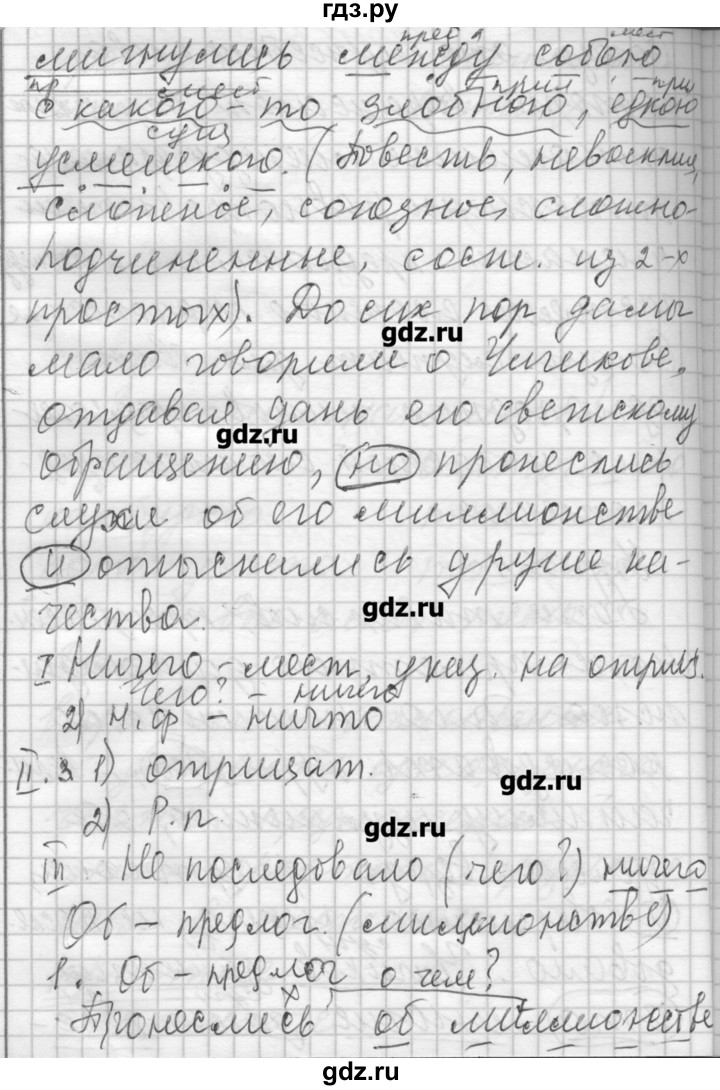 гдз.ру
пред мест
мигнулись между собою
пр мест прил при
с какого-то злобного, едкою
сущ
усмешкою. (Повеств, невосклиц,
сложное, союзное, сложно-
подчиненные, сост. из 2-х
простых). До сих пор дамы
gdz.ru
мало говорили о Чичикове,
отдавая дань его светскому
gdz.ru
обращению, но пронеслись
слухи об его миллионстве
и отыскались другие ка-
gdz.ru
чества.
I Ничего - мест, указ. на отриц.
Чего? - ничего
2) н. ф - ничто
II. 3. 1) отрицат.
gdz.ru
2) Р.п.
gdz.ru
III. Не последовало (чего?) ничего
Об - предлог. (миллионстве)
1. Об - предлог о чем?
Пронеслись об миллионстве
gdz.ru